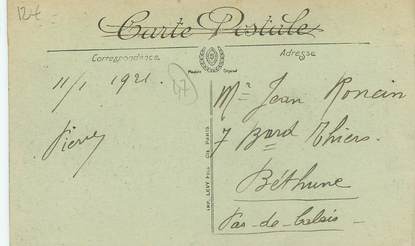 12€
Carte Postale
Correspondance
Adresse
Modèle Déposé
11/1 1921.
47
Pierre
Mr Jean Roncin
7 Bard Thiers.
Béthune
Pas-de-Calais
IMP. LEVY FILS & Cie PARIS